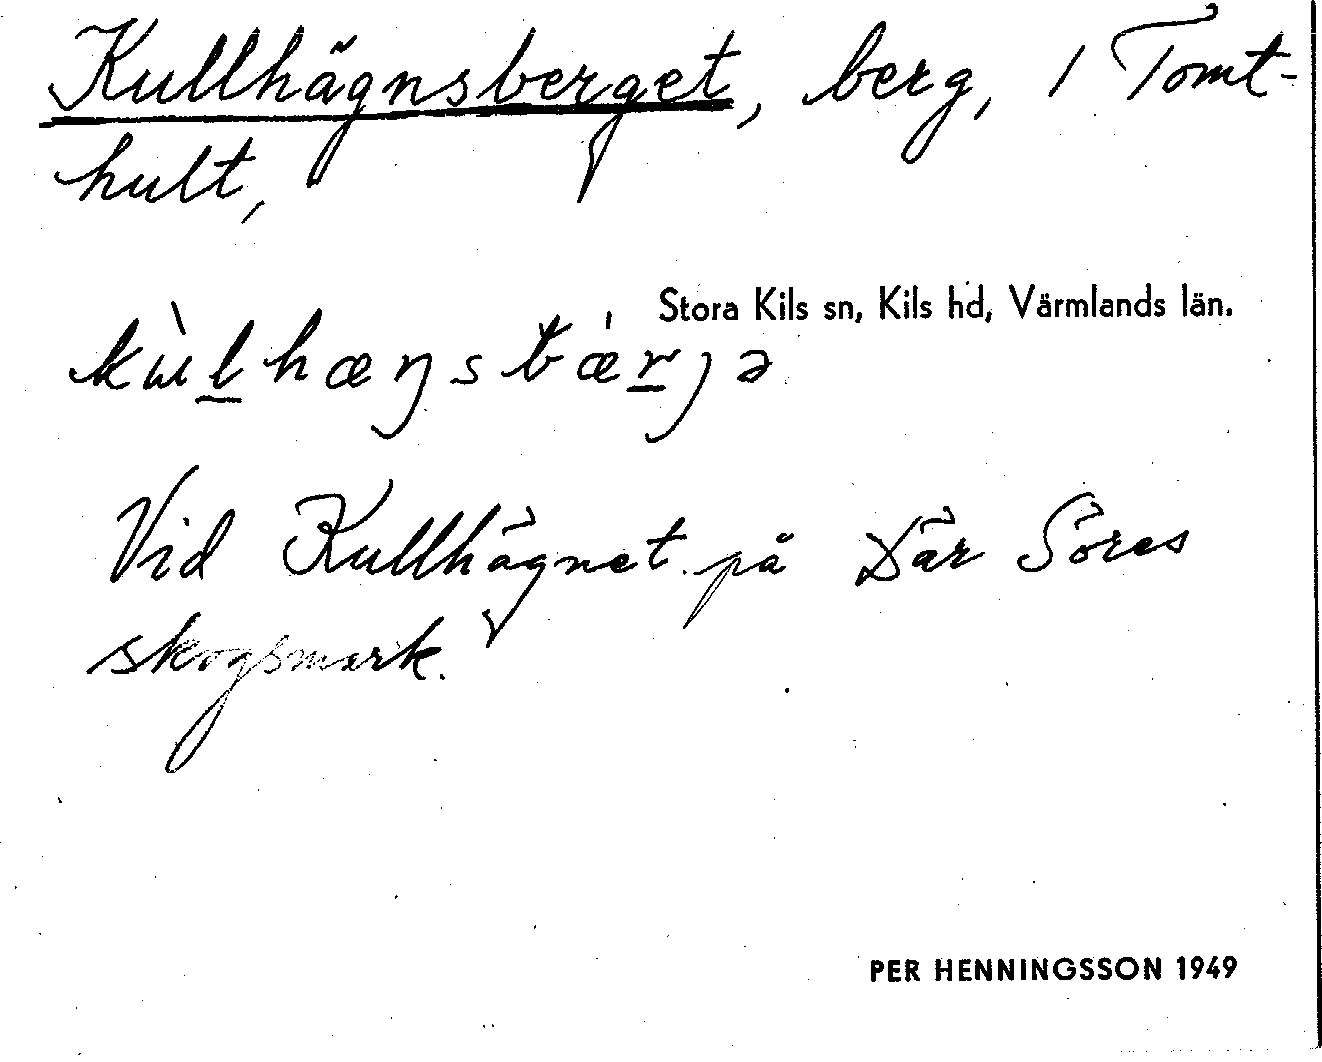 Kullhägnsberget, berg, 1 Tomt-
hult,
Stora Kils sn, Kils hd, Värmlands län.
kùlhæŋsbǽrjə
Vid Kullhägnet på Där Söres
skogsmark.
PER HENNINGSSON 1949